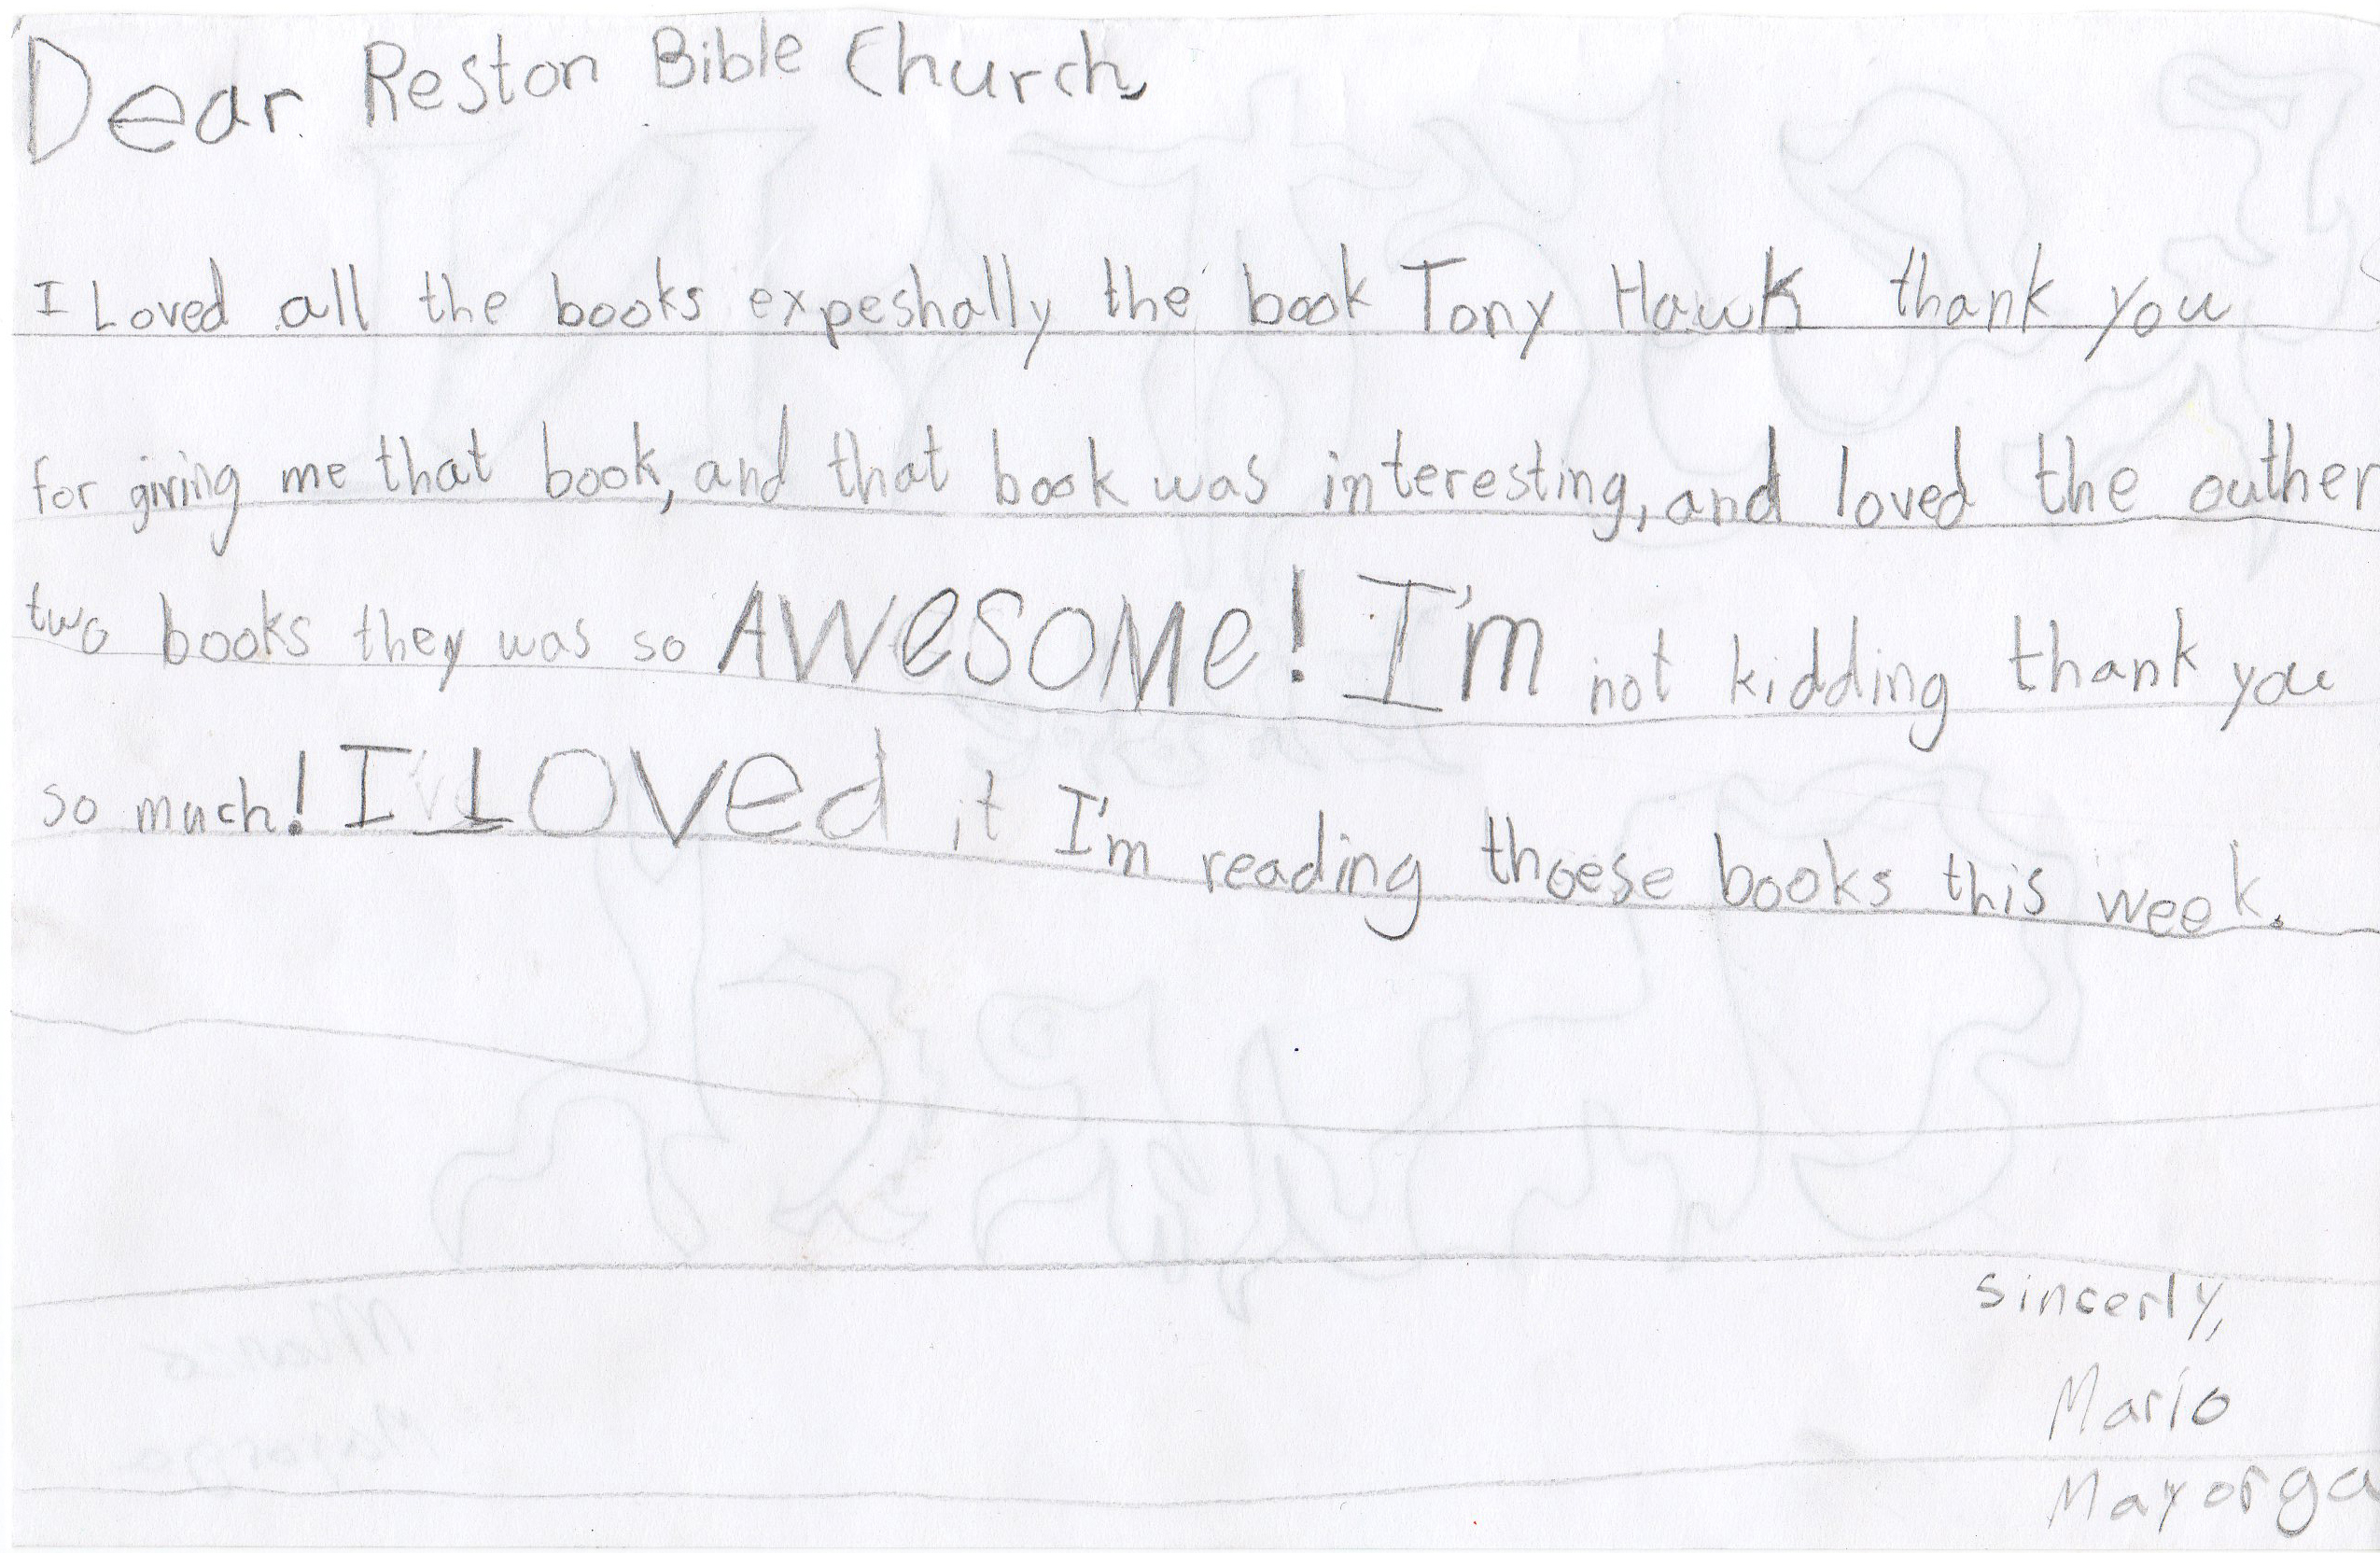 Dear Reston Bible Church,
I Loved all the books expeshally the book Tony Hawk thank you
for giving me that book, and that book was interesting, and loved the outher
two books they was so AWeSOMe! I'm not kidding thank you
so much! I LOVed it I'm reading thoese books this week.
sincerly,
Mario
Mayorga